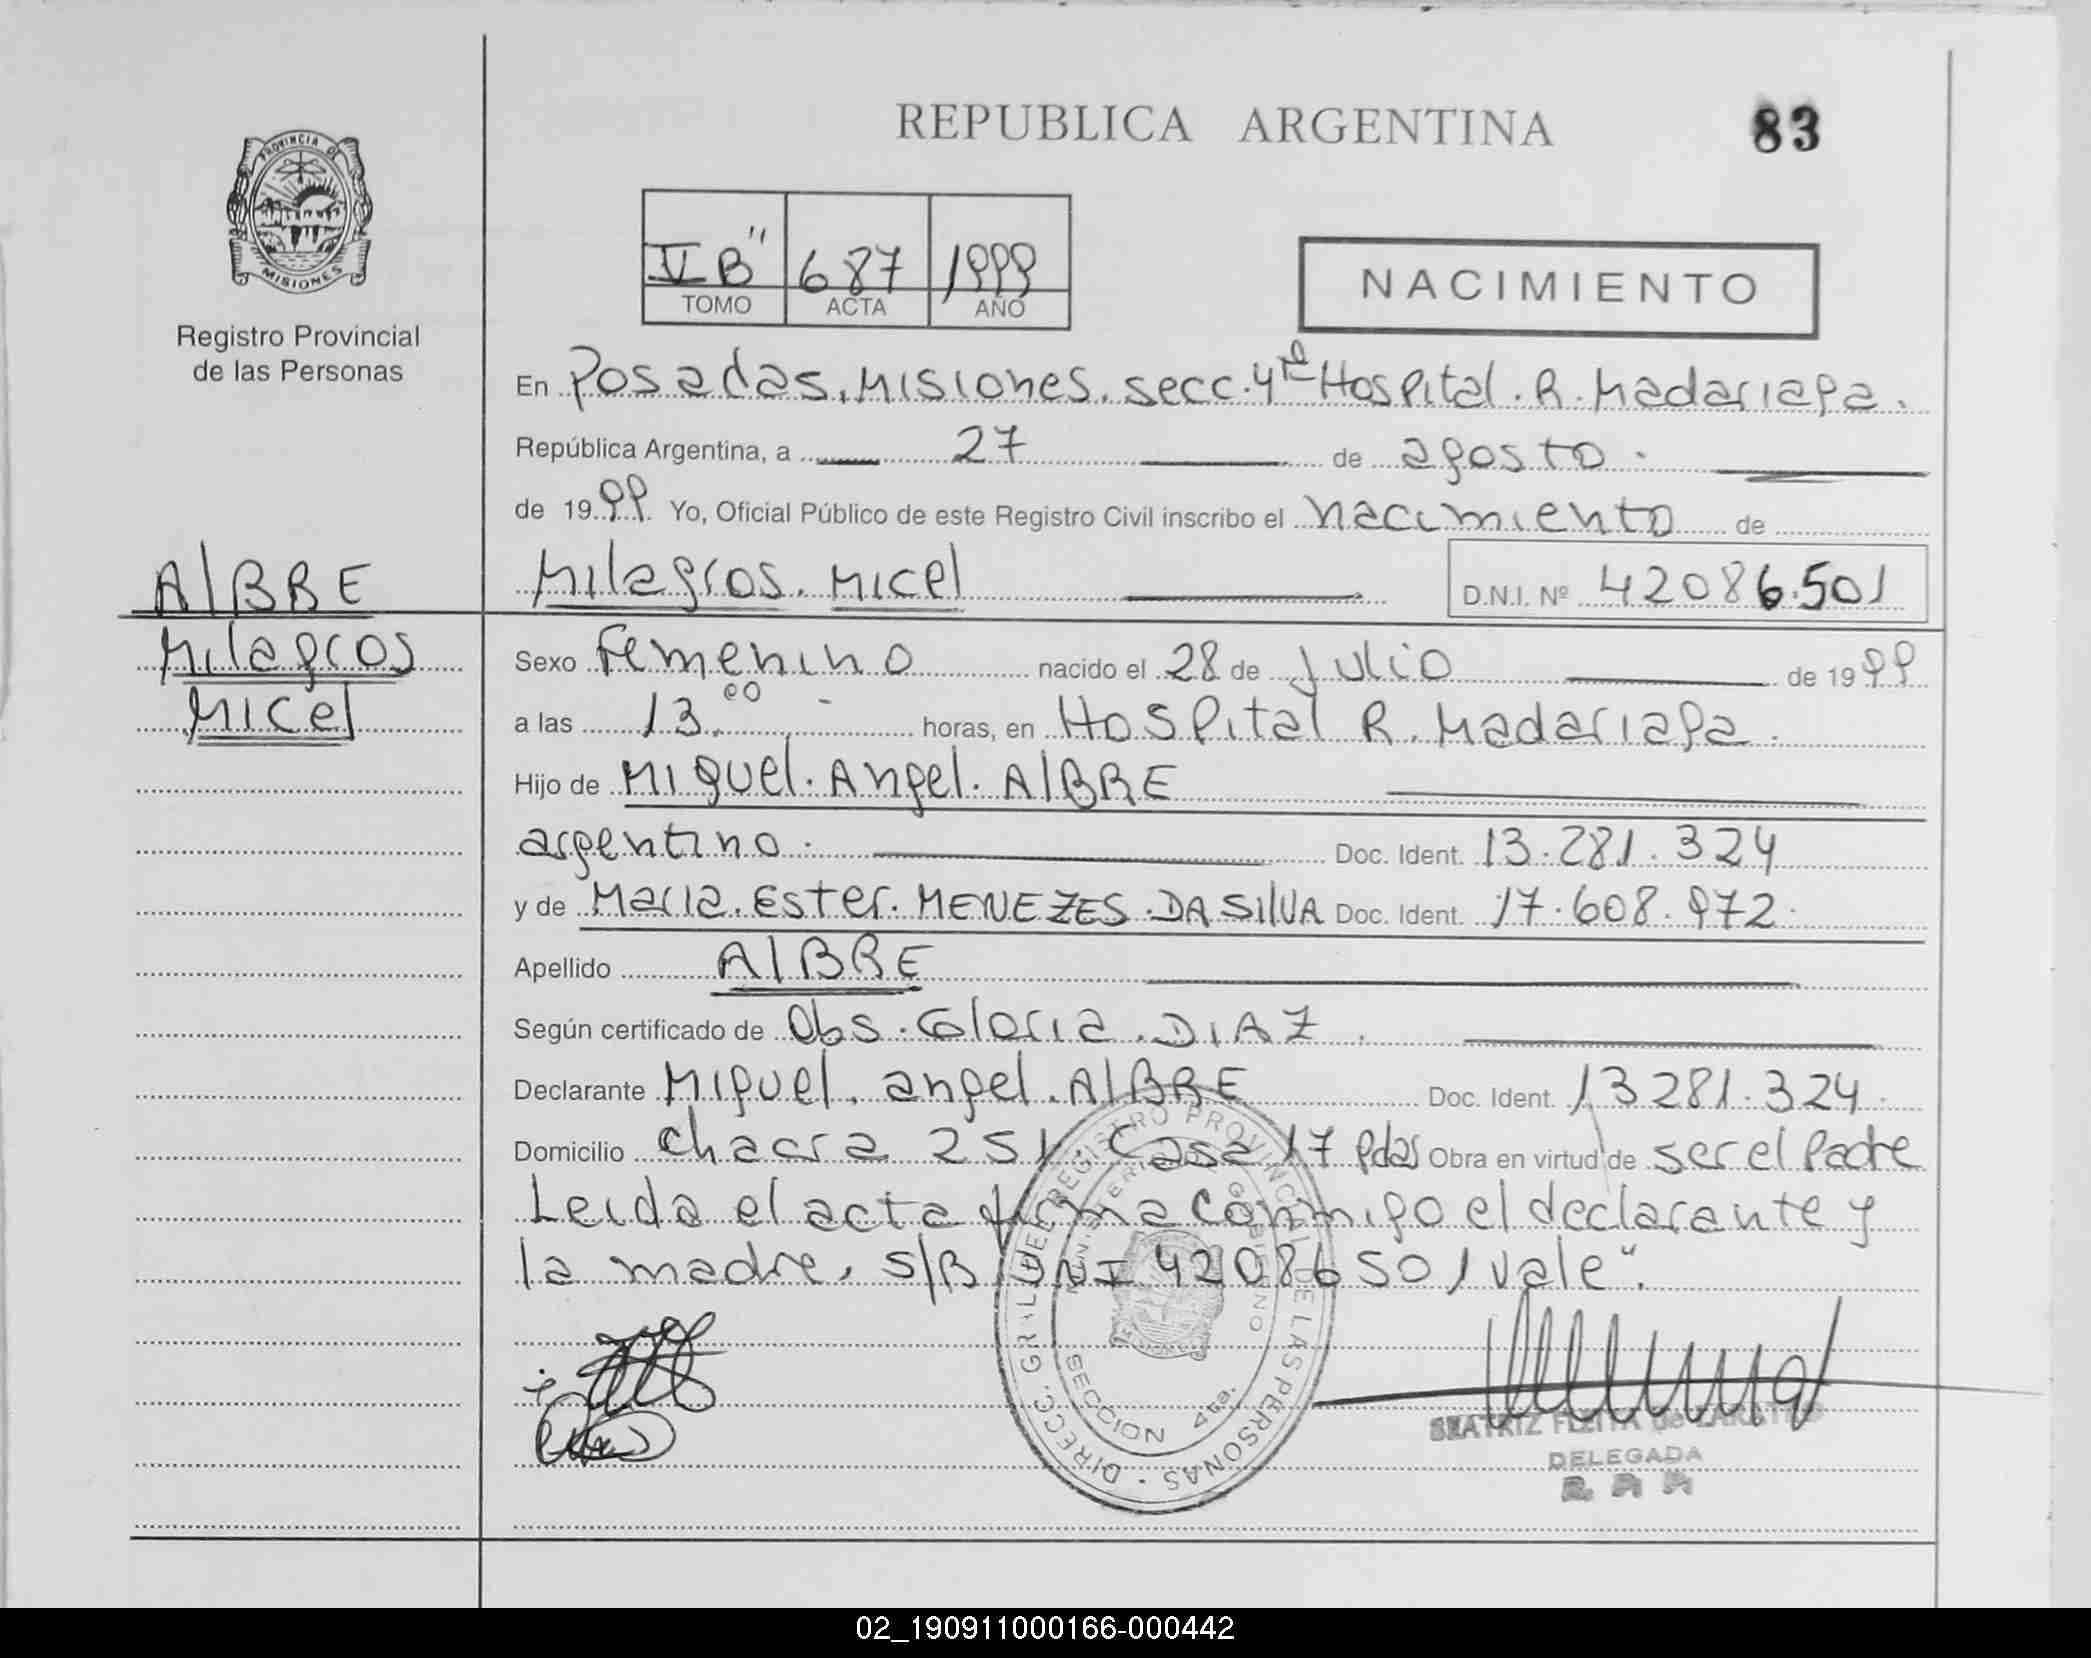 REPUBLICA ARGENTINA
83
PROVINCIA DE
MISIONES
Registro Provincial
de las Personas
V B" 687 1999
TOMO ACTA AÑO
NACIMIENTO
En Posadas. Misiones. secc. 4ta Hospital. R. Madariaga.
República Argentina, a 27 de agosto.
de 1999. Yo, Oficial Público de este Registro Civil inscribo el nacimiento de
Milagros. Micel D.N.I. Nº 42086.501
AlBRE
Milagros
Micel
Sexo Femenino nacido el 28 de Julio de 1999
a las 13.00 - horas, en Hospital R. Madariaga.
Hijo de Miguel. Angel. AlBRE
argentino. Doc. Ident. 13.281.324
y de Maria. Ester. MENEZES. DA SilVA Doc. Ident. 17.608.972.
Apellido AlBRE
Según certificado de Obs. Gloria. DIAZ.
Declarante Miguel. angel. AlBRE Doc. Ident. 13281.324.
Domicilio chacra 251. Casa 17 Pdas Obra en virtud de ser el Padre
Leida el acta firma conmigo el declarante y
la madre. S/B DNI 42086501 vale".
DIRECC. GRAL. DEL REGISTRO PROVINCIAL DE LAS PERSONAS
MINISTERIO GOBIERNO
SECCION 4ta.
BEATRIZ FLEITA de
DELEGADA
02_190911000166-000442